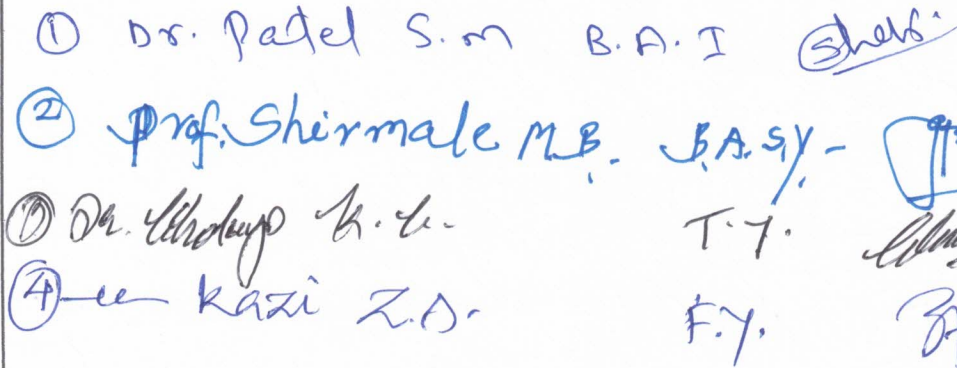 ① Dr. Patel S.M B.A.I
② Prof. Shirmale M.B. B.A.S.Y-
③ Dr. K.K. T.Y.
④ -"- Kazi Z.A. F.Y.